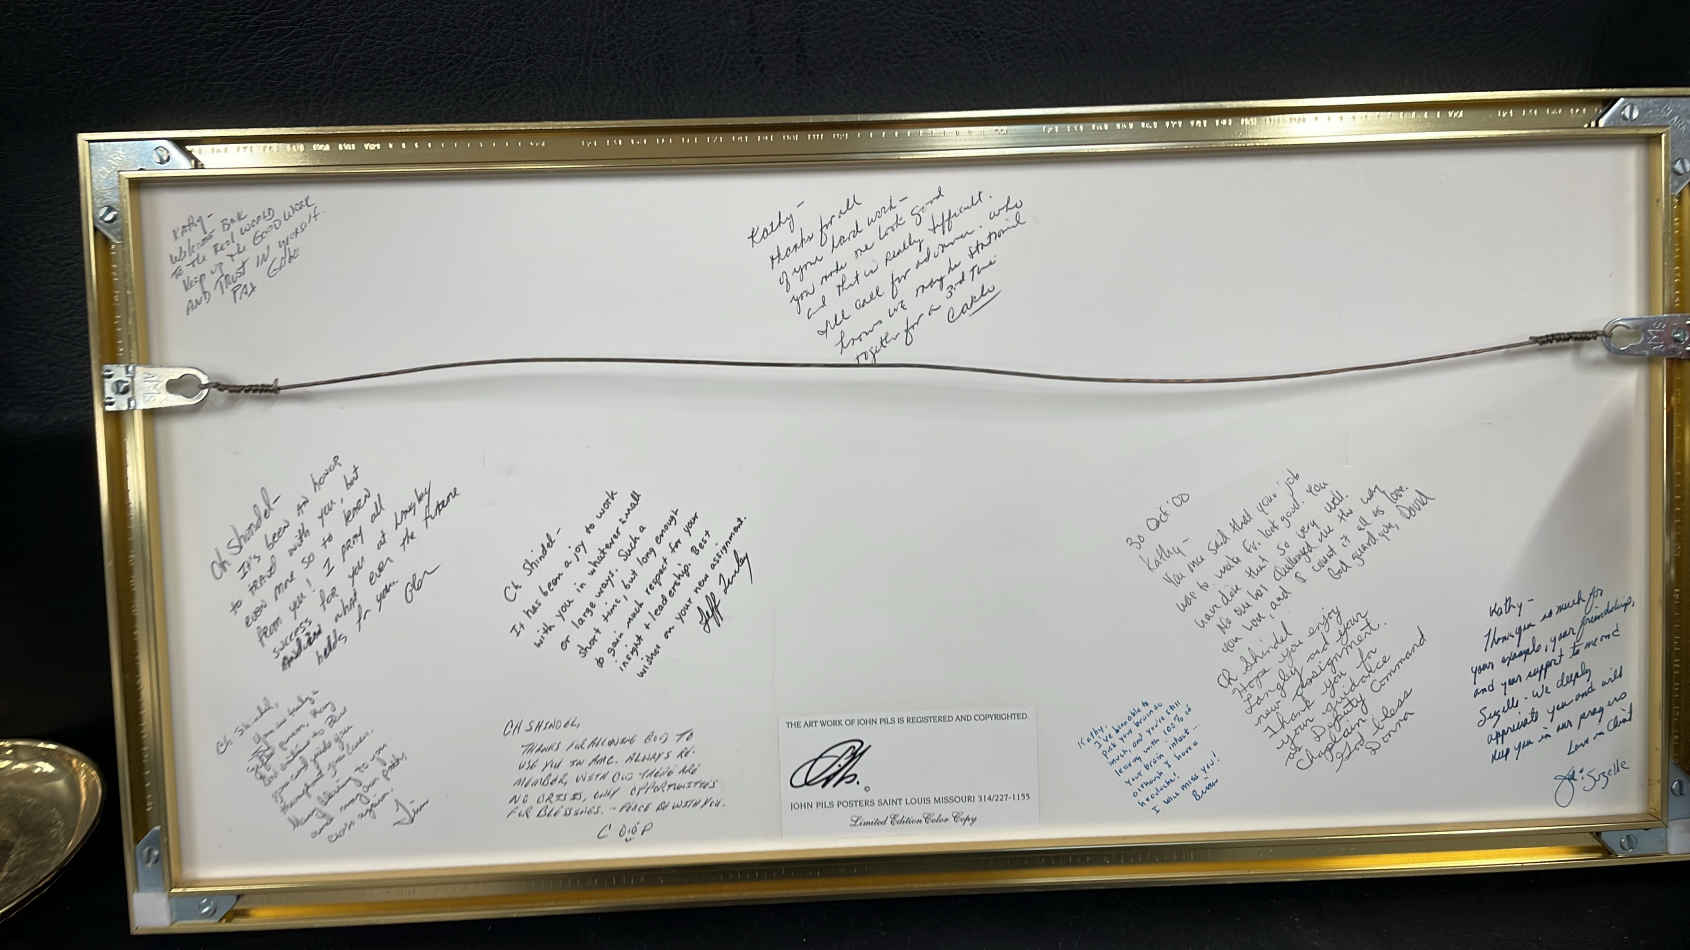 Kathy-
Welcome Back
To the Real World
Keep up the Good Work
AND TRUST IN yourself.
Pax Gabe
Kathy-
thanks for all
of your hard work-
you make me look good
and that is really difficult.
I'll call for advance. who
knows we may be stationed
together for a 3rd time
Carlo
Ch Shindel-
It's been an honor
to travel with you, but
even more so to learn
from you! I pray all
success for you at Langley
and what ever the future
holds for you.
Glen
Ch Shindel-
It has been a joy to work
with you in whatever small
or large ways. Such a
short time, but long enough
to gain much respect for your
insight & leadership. Best
wishes on your new assignment.
Jeff
30 Oct 00
Kathy-
You once said that your job
was to make Ev. look good. You
have done that so very well.
No one has challenged me the way
you have, and I count it all as love.
God guard you, David
Ch Shindel
Hope you enjoy
Langly and your
new Assignment.
Thank you for
your guidance
as Deputy Command
Chaplain
God bless
Donna
Kathy-
Thank you so much for
your example, your friendship,
and your support to me and
Suzelle. We deeply
appreciate you and will
keep you in our prayers
Love in Christ
Joe & Suzelle
Ch Shindel,
May blessing to you
and may our paths
cross again.
Jim
CH SHINDEL,
THANKS FOR ALLOWING GOD TO
USE YOU IN AMC. ALWAYS RE-
MEMBER, WITH GOD THERE ARE
NO CRISIS, ONLY OPPORTUNITIES
FOR BLESSINGS. - PEACE BE WITH YOU.
THE ART WORK OF JOHN PILS IS REGISTERED AND COPYRIGHTED
JOHN PILS POSTERS SAINT LOUIS MISSOURI 314/227-1155
Limited Edition Color Copy
Kathy,
I've been able to
pick your brain so
much, and you're still
leaving with 100% of
your brain intact -
although I have a
headache!
I will miss you!
Brian
AMS
AMS